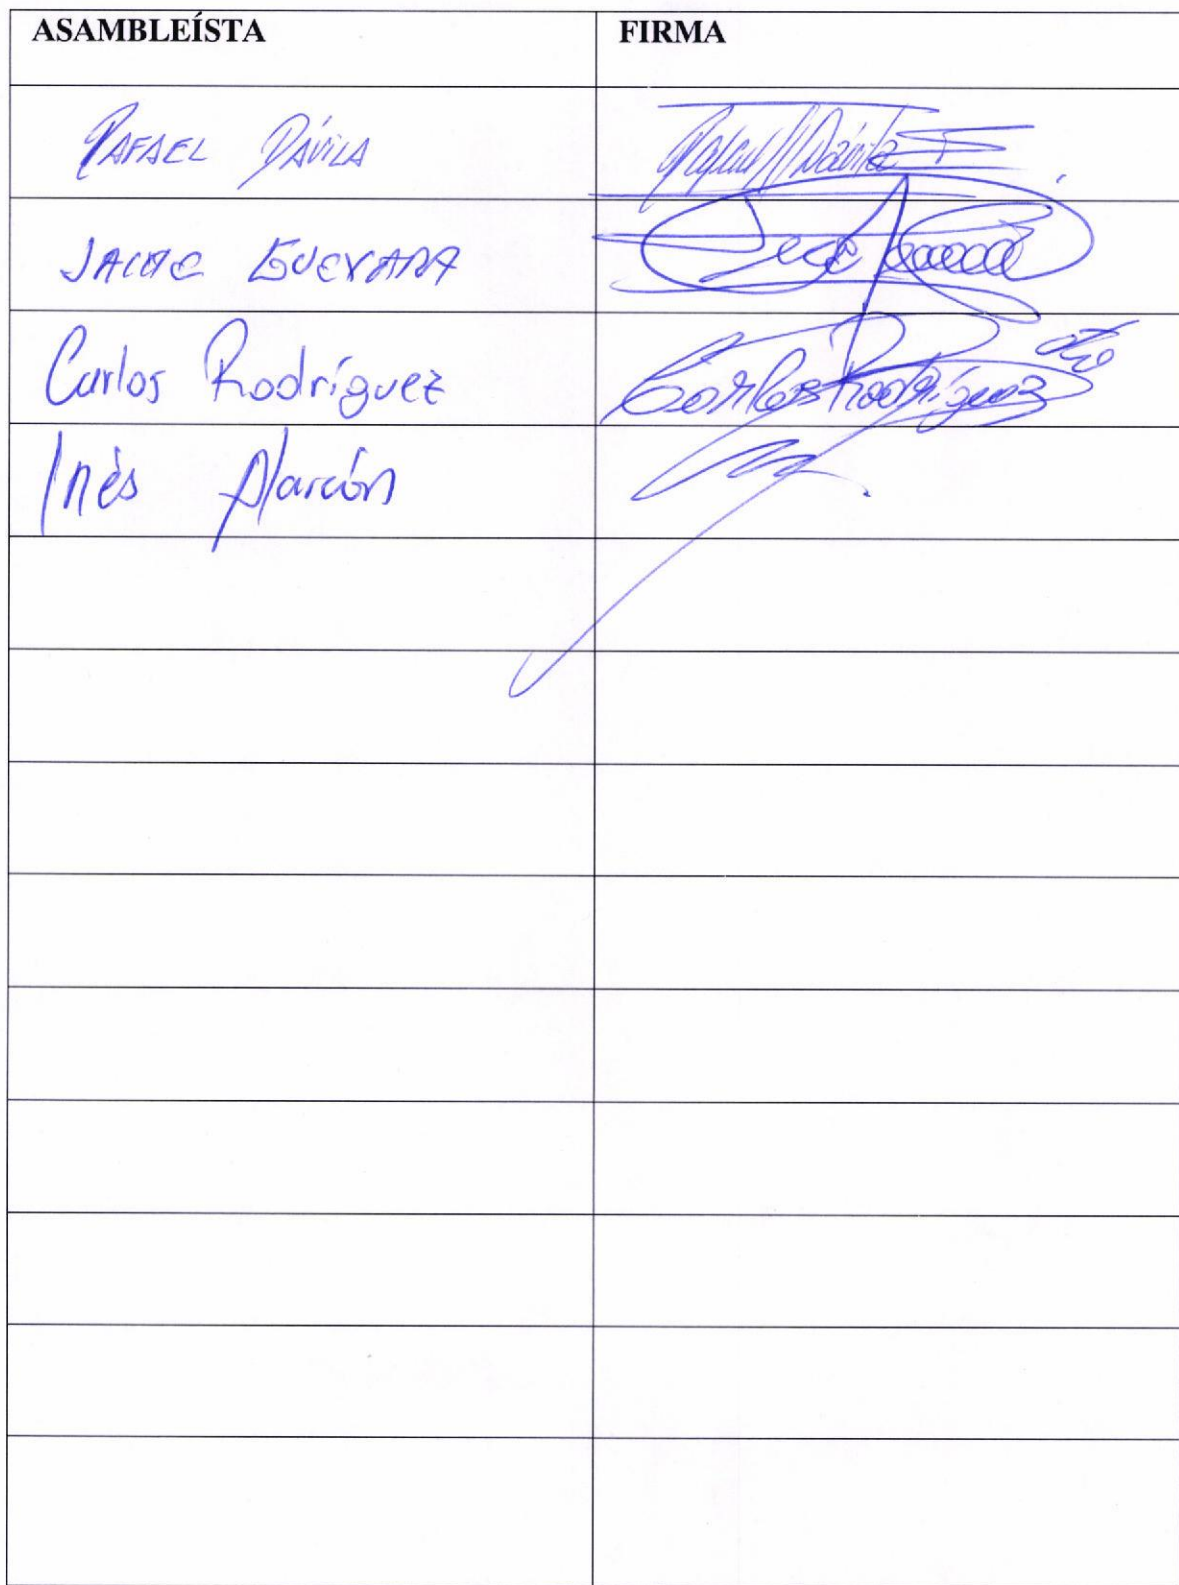 ASAMBLEÍSTA FIRMA
RAFAEL DÁVILA Rafael Dávila
JAIME GUEVARA
Carlos Rodríguez Carlos Rodríguez
Inés Alarcón